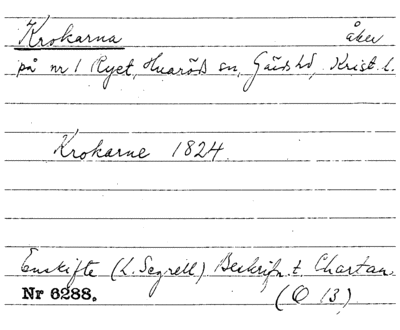 Krokarna åker
på nr 1 Ryet, Huaröds sn, Gärds hd, Krist. l.
Krokarne 1824.
Enskifte (L. Segrell) Beskrifn. t. Chartan.
Nr 6288. (O 13)